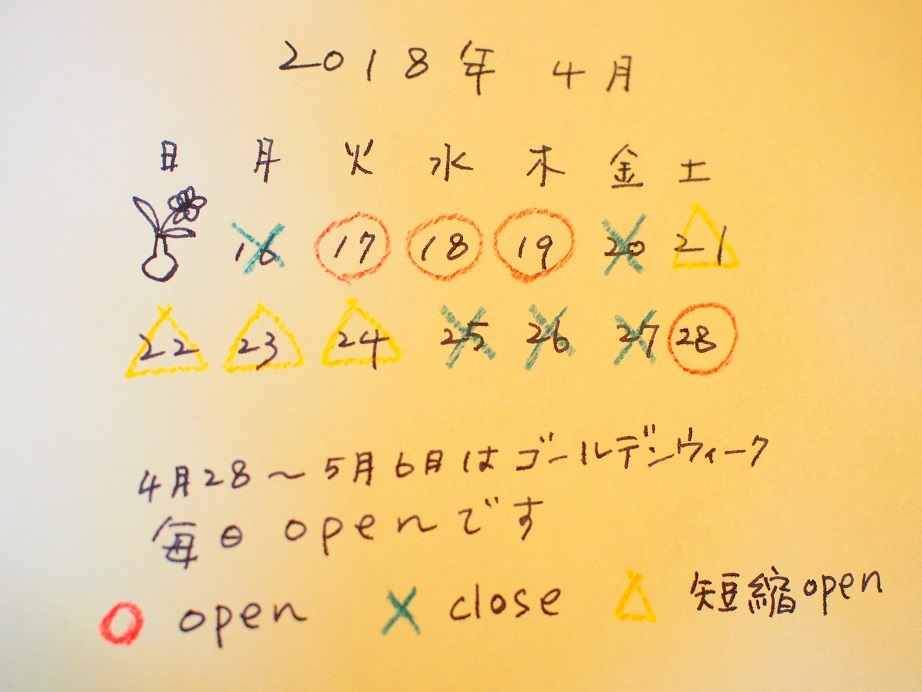 2018年 4月
日 月 火 水 木 金 土
16 17 18 19 20 21
22 23 24 25 26 27 28
4月28～5月6日はゴールデンウィーク
毎日openです
open close 短縮open